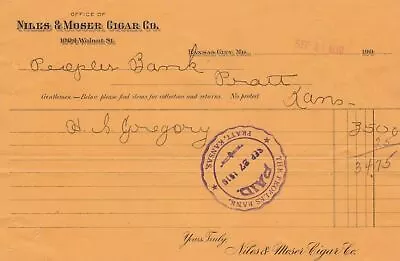 OFFICE OF
NILES & MOSER CIGAR CO.
1024 Walnut St.
KANSAS CITY, MO. 190
Peoples Bank
Pratt
Gentlemen:—Below please find items for collection and returns. No protest
Kans.
H. S. Gregory 35 00
25
34 75
THE PEOPLES BANK,
PAID
SEP 27 1910
PRATT, KANSAS.
Yours Truly,
Niles & Moser Cigar Co.